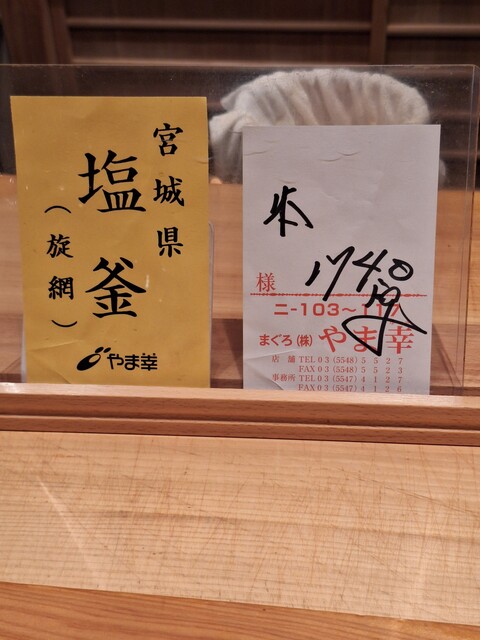 宮城県
塩釜
（旋網）
やま幸
本
様
ニ-103〜117
まぐろ（株）やま幸
店舗 TEL 03（5548）5527
FAX 03（5548）5523
事務所 TEL 03（5547）4127
FAX 03（5547）4126